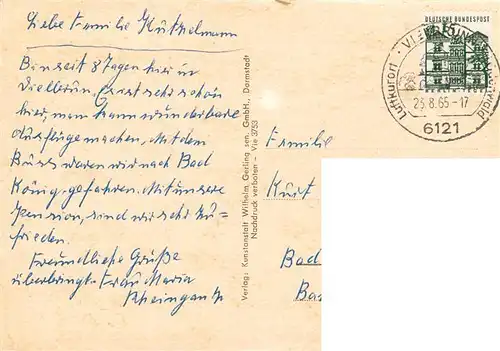 Liebe Familie Hützelmann
Bin seit 8 Tagen hier in
Vielbrunn. Es ist sehr schön
hier, man kann wunderbare
Ausflüge machen. Mit dem
Buss waren wir nach Bad
König gefahren. Mit unsere
Pension, sind wir sehr zu=
frieden.
Freundliche Grüße
überbringt= Frau Maria
Rheingans
Verlag: Kunstanstalt Wilhelm Gerling sen. GmbH., Darmstadt
Nachdruck verboten – Vie 3753
DEUTSCHE BUNDESPOST
Luftkurort · VIELBRUNN
23.8.65-17
6121
Familie
Kurt
Bad
Ba